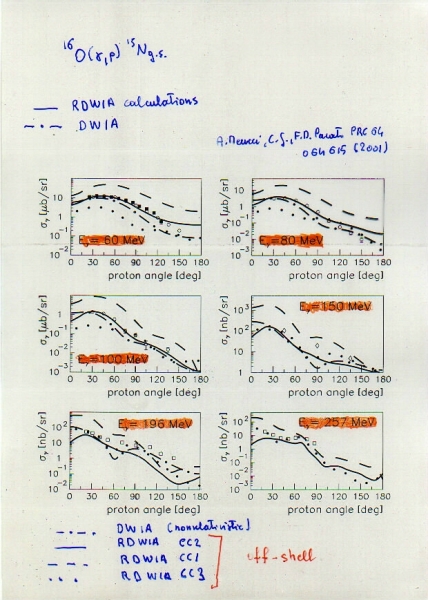 ¹⁶O(γ,p) ¹⁵N g.s.
RDWIA calculations
DWIA
A. Meucci, C. G., F.D. Pacati PRC 64
064615 (2001)
σγ [μb/sr]
10
1
10⁻¹
10⁻²
Eγ = 60 MeV
0 30 60 90 120 150 180
proton angle [deg]
σγ [μb/sr]
10
1
10⁻¹
10⁻²
10⁻³
10⁻⁴
Eγ = 80 MeV
0 30 60 90 120 150 180
proton angle [deg]
σγ [μb/sr]
10
1
10⁻¹
10⁻²
10⁻³
Eγ = 100 MeV
0 30 60 90 120 150 180
proton angle [deg]
σγ [nb/sr]
10³
10²
10
1
Eγ = 150 MeV
0 30 60 90 120 150 180
proton angle [deg]
σγ [nb/sr]
10²
10
1
10⁻¹
10⁻²
Eγ = 196 MeV
0 30 60 90 120 150 180
proton angle [deg]
σγ [nb/sr]
10²
10
1
10⁻¹
10⁻²
Eγ = 257 MeV
0 30 60 90 120 150 180
proton angle [deg]
DWIA (nonrelativistic)
RDWIA CC2
RDWIA CC1
RDWIA CC3
off-shell